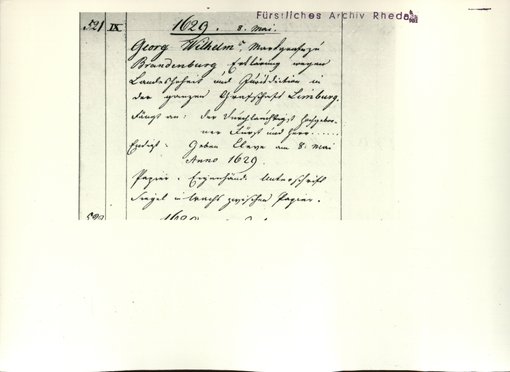 Fürstliches Archiv Rheda
521 IX 1629. 8. Mai.
Georg Wilhelm, Markgraf zu
Brandenburg Erklärung wegen
Landeshoheit und Jurisdiction in
der ganzen Grafschaft Limburg.
Fängt an: der Durchlauchtigst Hochgebor-
ner Fürst und Herr......
Endigt: Geben Cleve am 8. Mai
Anno 1629.
Papier. Eigenhänd. Unterschrift
Siegel in Wachs zwischen Papier.